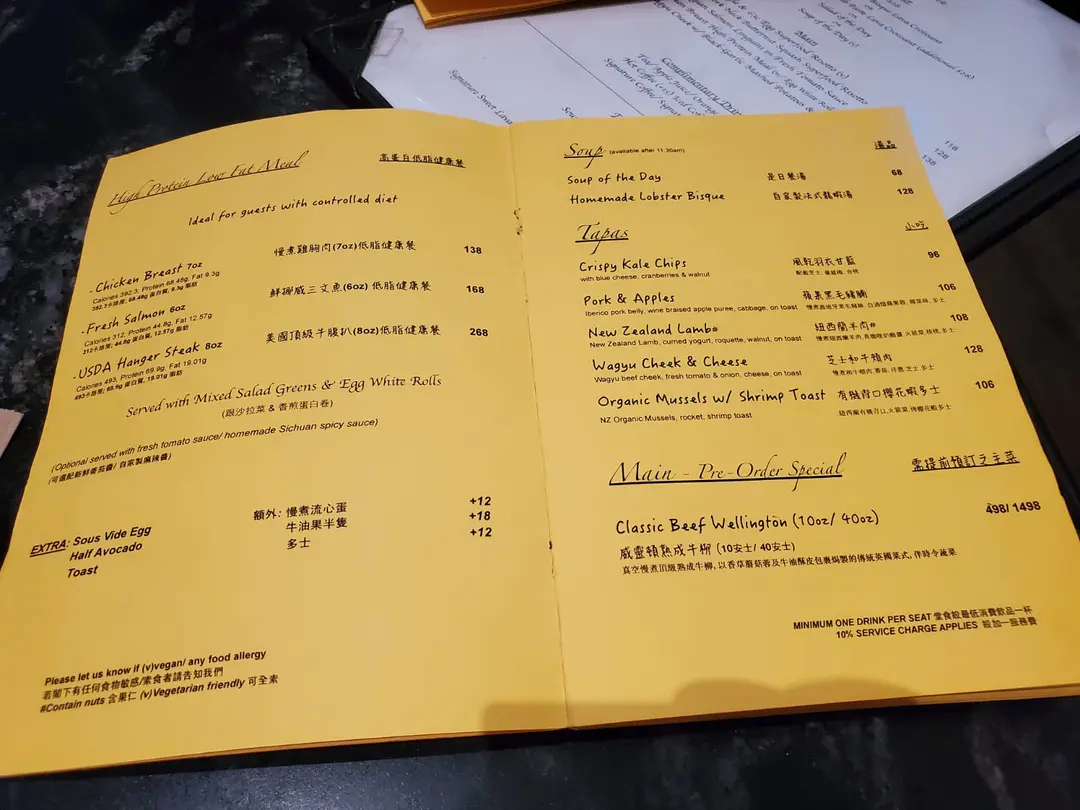 High Protein Low Fat Meal 高蛋白低脂健康餐
Ideal for guests with controlled diet
-Chicken Breast 7oz 慢煮雞胸肉(7oz)低脂健康餐 138
Calories 392.3, Protein 68.48g, Fat 9.3g
392.3卡路里, 68.48g 蛋白質, 9.3g 脂肪
-Fresh Salmon 6oz 鮮挪威三文魚(6oz) 低脂健康餐 168
Calories 312, Protein 44.8g, Fat 12.57g
312卡路里, 44.8g 蛋白質, 12.57g 脂肪
-USDA Hanger Steak 8oz 美國頂級牛腰扒(8oz)低脂健康餐 268
Calories 493, Protein 69.9g, Fat 19.01g
493卡路里, 69.9g 蛋白質, 19.01g 脂肪
Served with Mixed Salad Greens & Egg White Rolls
(跟沙拉菜 & 香煎蛋白卷)
(Optional served with fresh tomato sauce/ homemade Sichuan spicy sauce)
(可選配新鮮番茄醬/ 自家製麻辣醬)
EXTRA: Sous Vide Egg 額外: 慢煮流心蛋 +12
Half Avocado 牛油果半隻 +18
Toast 多士 +12
Please let us know if (v)vegan/ any food allergy
若閣下有任何食物敏感/素食者請告知我們
#Contain nuts 含果仁 (v)Vegetarian friendly 可全素
Soup (available after 11:30am) 湯品
Soup of the Day 是日餐湯 68
Homemade Lobster Bisque 自家製法式龍蝦湯 128
Tapas 小吃
Crispy Kale Chips 風乾羽衣甘藍 96
with blue cheese, cranberries & walnut
Pork & Apples 蘋果黑毛豬腩 106
Iberico pork belly, wine braised apple puree, cabbage, on toast
New Zealand Lamb# 紐西蘭羊肉# 108
New Zealand Lamb, curned yogurt, roquette, walnut, on toast
Wagyu Cheek & Cheese 芝士和牛頰肉 128
Wagyu beef cheek, fresh tomato & onion, cheese, on toast
Organic Mussels w/ Shrimp Toast 有機青口櫻花蝦多士 106
NZ Organic Mussels, rocket, shrimp toast 紐西蘭有機青口,火箭菜,伴櫻花蝦多士
Main - Pre-Order Special 需提前預訂之主菜
Classic Beef Wellington (10oz/ 40oz) 498/ 1498
威靈頓熟成牛柳 (10安士/ 40安士)
真空慢煮頂級熟成牛柳, 以香草蘑菇蓉及牛油酥皮包裹焗製的傳統英國菜式, 伴時令蔬菜
MINIMUM ONE DRINK PER SEAT 堂食設最低消費飲品一杯
10% SERVICE CHARGE APPLIES 設加一服務費
Soup of the Day (v)
Salad of the Day
Main
Complimentary